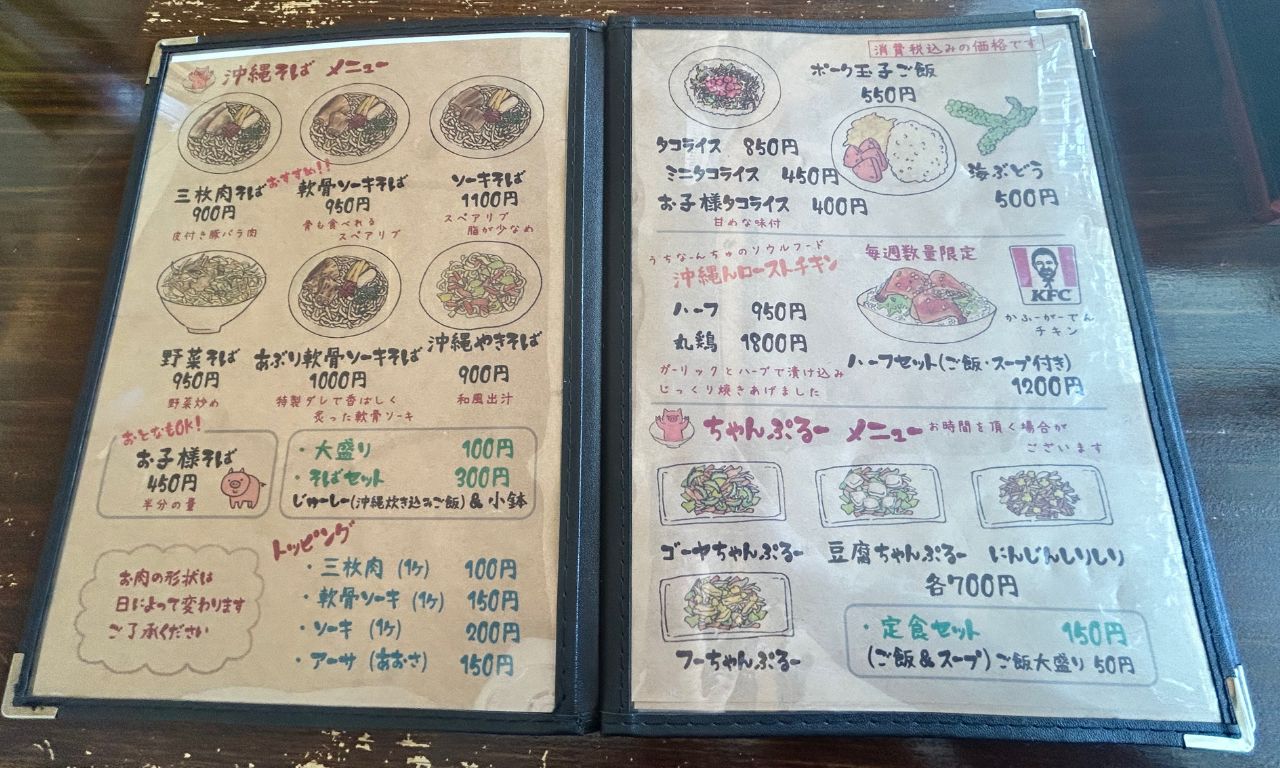 沖縄そば メニュー
三枚肉そば
900円
皮付き豚バラ肉
おすすめ!!
軟骨ソーキそば
950円
骨も食べれる
スペアリブ
ソーキそば
1100円
スペアリブ
脂が少なめ
野菜そば
950円
野菜炒め
あぶり軟骨ソーキそば
1000円
特製ダレで香ばしく
炙った軟骨ソーキ
沖縄やきそば
900円
和風出汁
おとなもOK!
お子様そば
450円
半分の量
・大盛り 100円
・そばセット 300円
じゅーしー(沖縄炊き込みご飯)&小鉢
トッピング
・三枚肉 (1ヶ) 100円
・軟骨ソーキ (1ヶ) 150円
・ソーキ (1ヶ) 200円
・アーサ (あおさ) 150円
お肉の形状は
日によって変わります
ご了承ください
消費税込みの価格です
ポーク玉子ご飯
550円
タコライス 850円
ミニタコライス 450円
お子様タコライス 400円
甘めな味付
海ぶどう
500円
うちなーんちゅのソウルフード
沖縄んローストチキン
ハーフ 950円
丸鶏 1800円
ガーリックとハーブで漬け込み
じっくり焼きあげました
毎週数量限定
KFC
かふーがーでん
チキン
ハーフセット(ご飯・スープ付き)
1200円
ちゃんぷるー メニュー
お時間を頂く場合が
ございます
ゴーヤちゃんぷるー
豆腐ちゃんぷるー
にんじんしりしり
各700円
フーちゃんぷるー
・定食セット 150円
(ご飯&スープ) ご飯大盛り 50円